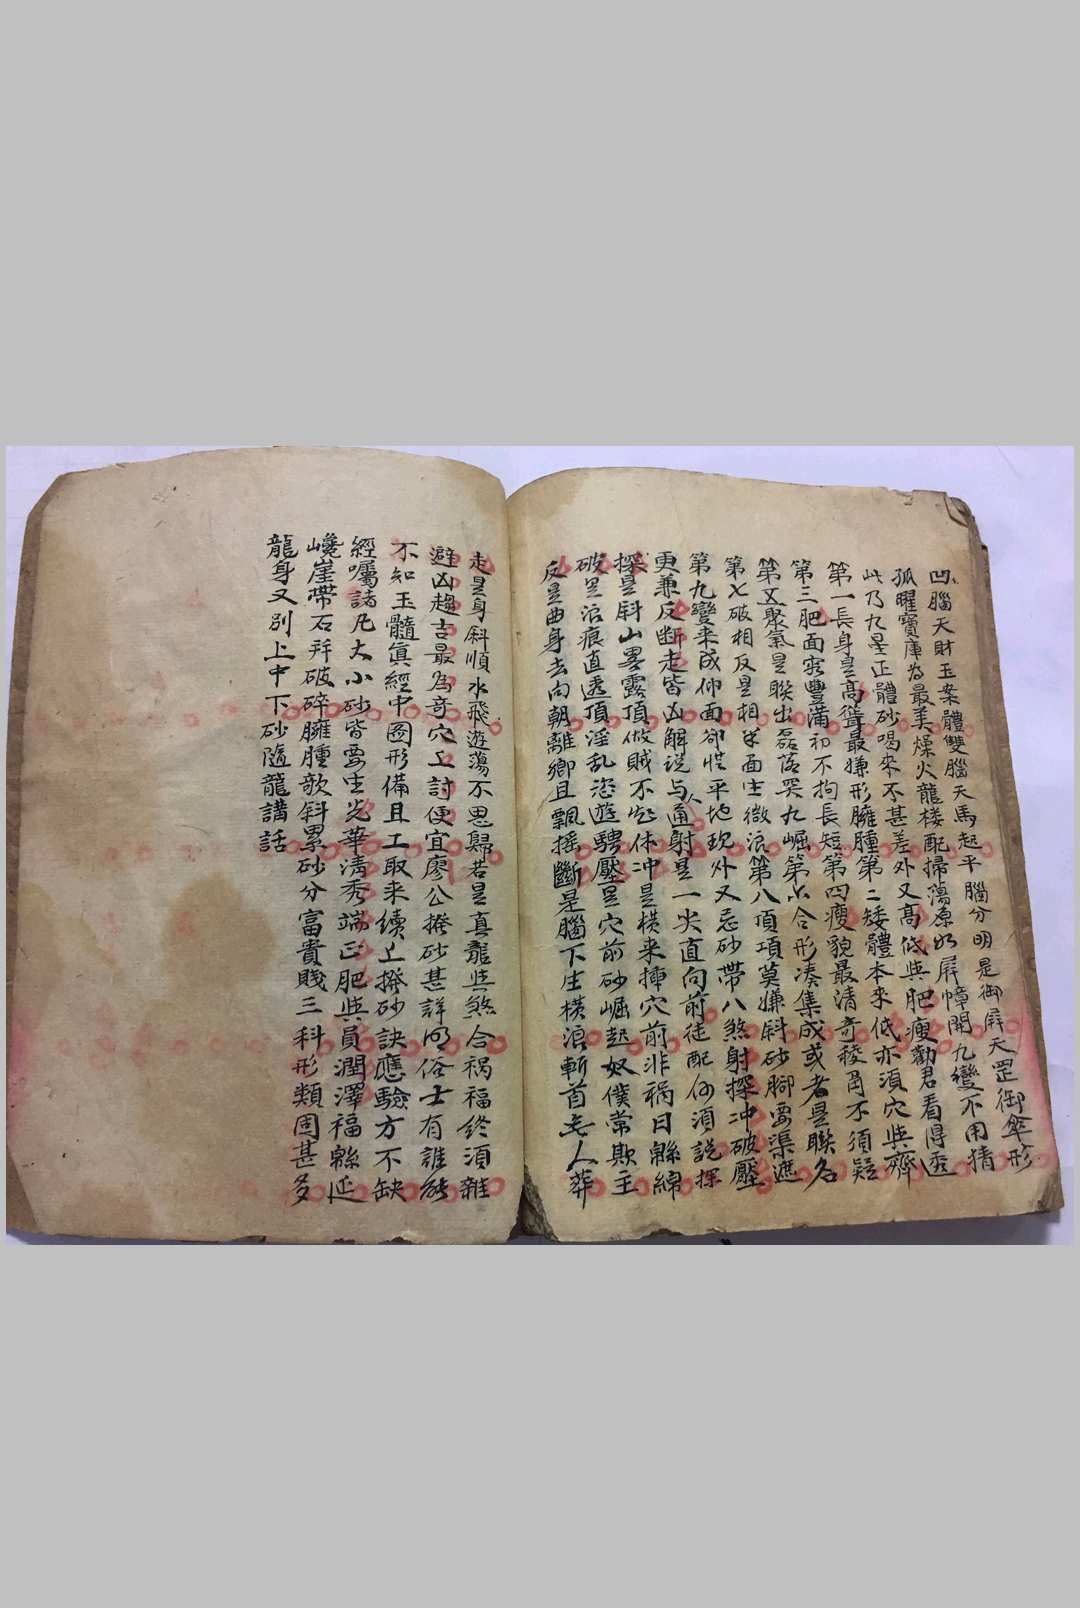 凹腦天財玉案體雙腦天馬起平腦分明是御屏天罡御傘形
孤曜寶庫為最美燥火龍楼配掃蕩原如屏幛開九變不用猜
此乃九星正體砂喝來不甚差外又高低與肥瘦勸君看得透
第一長身是高聳最嫌形臃腫第二矮體本来低亦須穴與齊
第三肥面家豐滿初不拘長短第四瘦貌最清奇稜角不須疑
第五聚氣是聯出磊落哭九崛第六合形凑集成或者是聯名
第七破相反是相半面生微浪第八頂項莫嫌斜砂腳要渠遮
第九變来成仰面卻恠平地現外又忌砂帶八煞射探冲破壓
更兼反断走皆凶解说与人通射是一尖直向前徒配何須説探
探是斜山畧露頂做賊不起休冲是横来揷穴前非禍日緜綿
破是浪痕直透頂淫乱恣遊騁壓是穴前砂崛起奴僕常欺主
反是曲身去向朝離鄉且飄摇斷是腦下生横浪斬首無人葬
走是身斜順水飛遊蕩不思歸若是真龍與煞合禍福終須雜
避凶趨吉最為奇穴上討便宜廖公撥砂甚詳明俗士有誰能
不知玉髓真經中圖形備且工取来续上撥砂訣應驗方不缺
經囑諸凡大小砂皆要生光華清秀端正肥與員潤澤福緜延
巉崖帶石并破碎臃腫欹斜累砂分富貴賤三科形類固甚多
龍身又别上中下砂隨龍講話